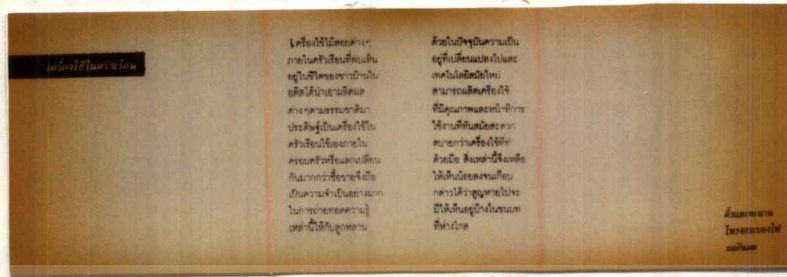 เครื่องใช้ในครัวเรือน
เครื่องใช้ไม้สอยต่างๆ
ภายในครัวเรือนที่พบเห็น
อยู่ในชีวิตของชาวบ้านใน
อดีตได้นำเอาผลิตผล
ต่างๆตามธรรมชาติมา
ประดิษฐ์เป็นเครื่องใช้ใน
ครัวเรือนใช้เองภายใน
ครอบครัวหรือแลกเปลี่ยน
กันมากกว่าซื้อขายจึงถือ
เป็นความจำเป็นอย่างมาก
ในการถ่ายทอดความรู้
เหล่านี้ให้กับลูกหลาน
ด้วยในปัจจุบันความเป็น
อยู่ที่เปลี่ยนแปลงไปและ
เทคโนโลยีสมัยใหม่
สามารถผลิตเครื่องใช้
ที่มีคุณภาพและหน้าที่การ
ใช้งานที่ทันสมัยสะดวก
สบายกว่าเครื่องใช้ที่ทำ
ด้วยมือ สิ่งเหล่านี้จึงเหลือ
ให้เห็นน้อยลงจนเกือบ
กล่าวได้ว่าสูญหายไปจะ
มีให้เห็นอยู่บ้างในชนบท
ที่ห่างไกล